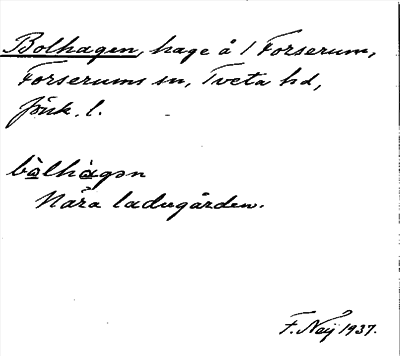 Bolhagen, hage å 1 Forserum,
Forserums sn, Tveta hd,
Jönk. l.
bòlhàgən
Nära ladugården.
F. Neij 1937.